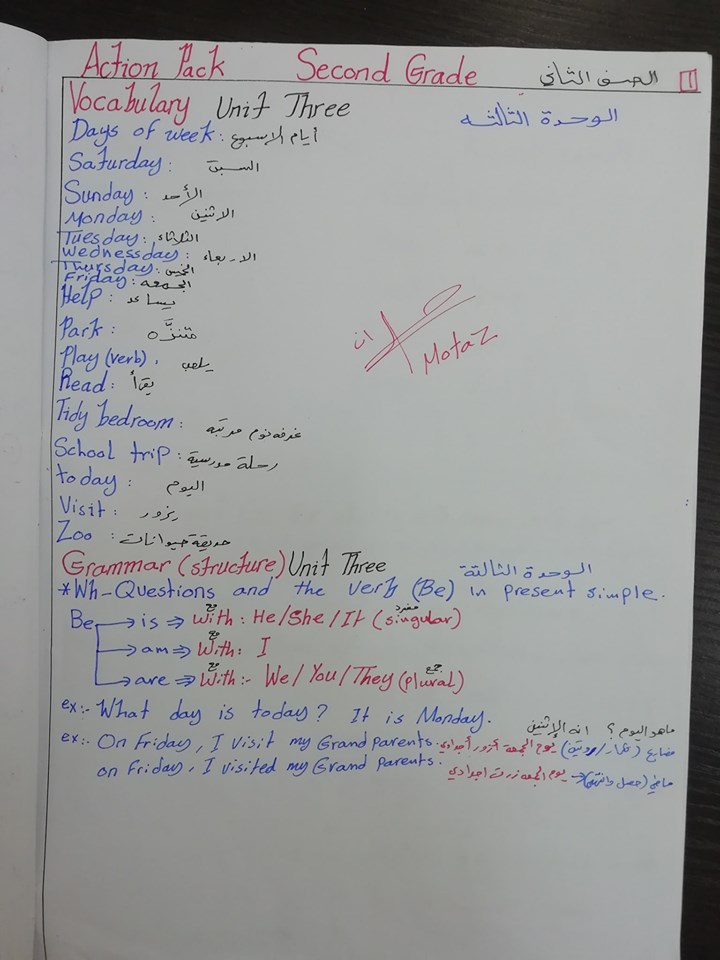 Action Pack Second Grade الصف الثاني 1
Vocabulary Unit Three الوحدة الثالثه
Days of week : أيام الاسبوع
Saturday : السبت
Sunday : الأحد
Monday : الاثنين
Tuesday : الثلاثاء
Wednesday : الاربعاء
Thursday : الخميس
Friday : الجمعه
Help : يساعد
Park : متنزَّه
Play (verb) : يلعب
Read : يقرأ
Motaz
Tidy bedroom : غرفه نوم مرتبه
School trip : رحلة مدرسية
today : اليوم
Visit : يزور
Zoo : حديقة حيوانات
Grammar (structure) Unit Three الوحدة الثالثة
*Wh-Questions and the verb (Be) in present simple.
Be → is ⇒ with مع : He/She/It (singular) مفرد
→ am ⇒ with مع : I
→ are ⇒ with مع :- We/You/They (plural) جمع
ex:- What day is today? It is Monday. ماهو اليوم ؟ انه الإثنين
ex:- On Friday, I visit my Grand parents. يوم الجمعه أزور أجدادي مضارع
on Friday, I visited my Grand parents. يوم الجمعه زرت اجدادي ماضي (حصل وانتهى)